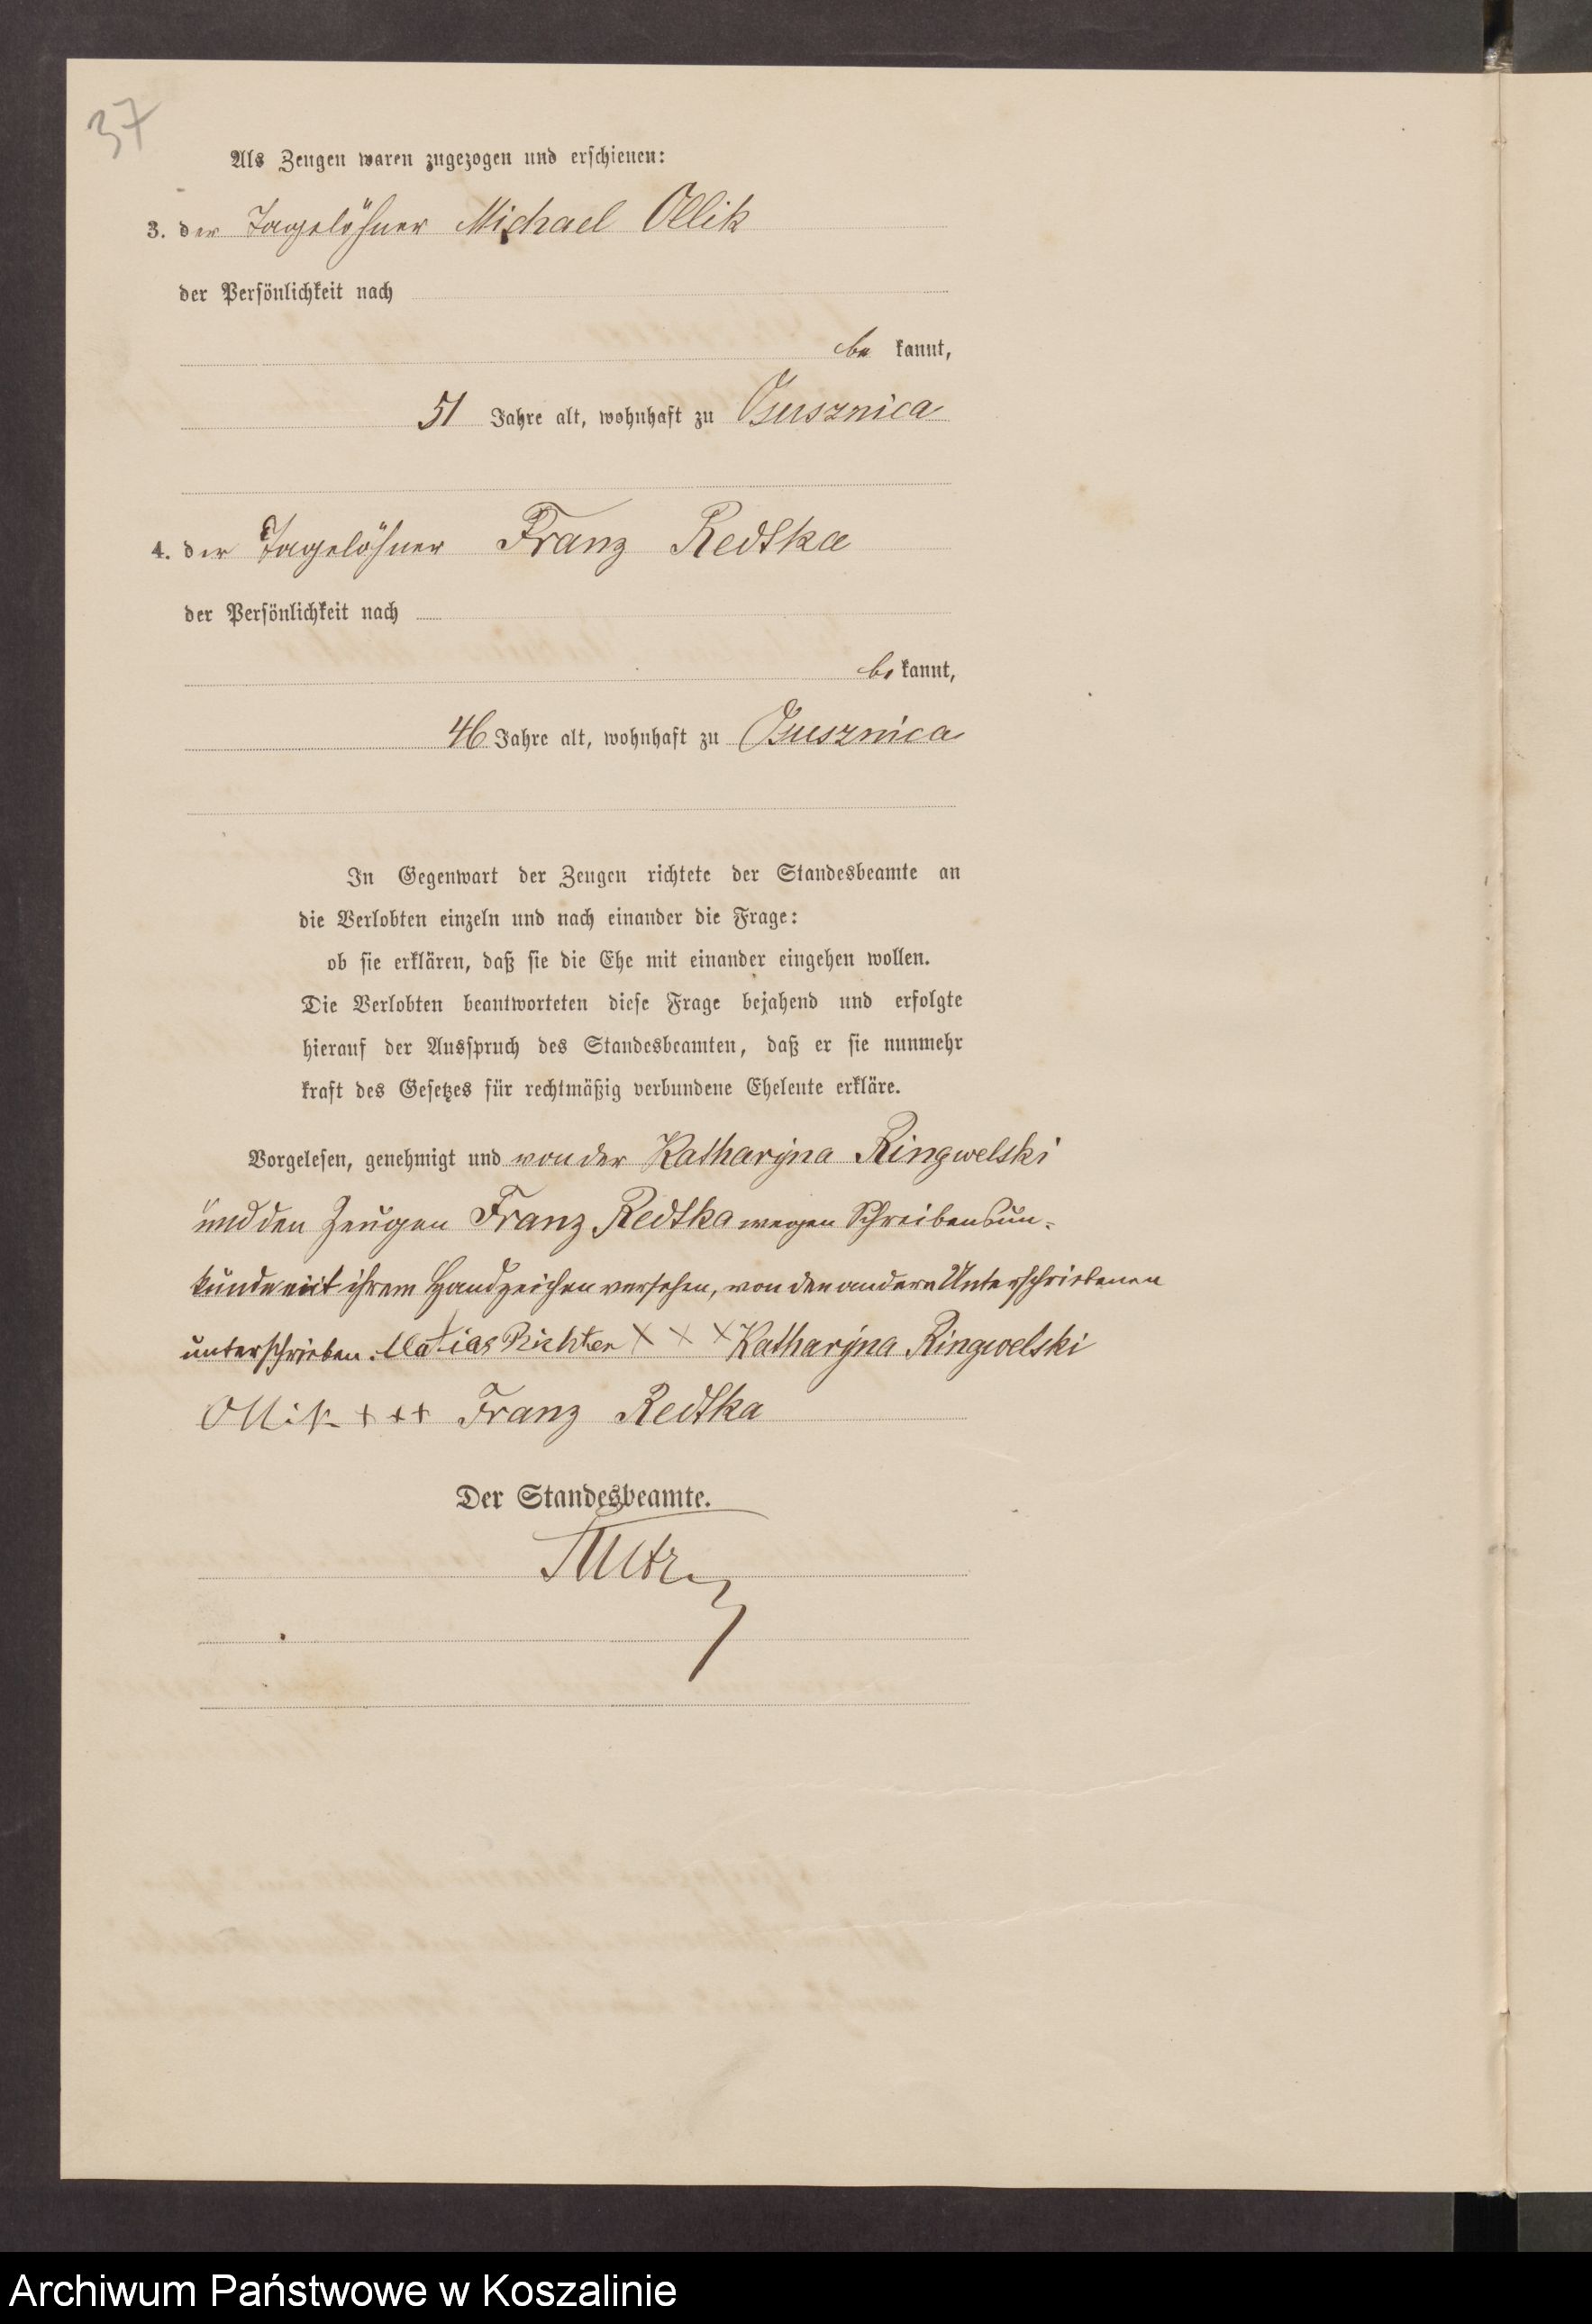 37
Als Zeugen waren zugezogen und erschienen:
3. der Tagelöhner Michael Ollik
der Persönlichkeit nach
be kannt,
51 Jahre alt, wohnhaft zu Osusznica
4. der Tagelöhner Franz Redtka
der Persönlichkeit nach
be kannt,
46 Jahre alt, wohnhaft zu Osusznica
In Gegenwart der Zeugen richtete der Standesbeamte an
die Verlobten einzeln und nach einander die Frage:
ob sie erklären, daß sie die Ehe mit einander eingehen wollen.
Die Verlobten beantworteten diese Frage bejahend und erfolgte
hierauf der Ausspruch des Standesbeamten, daß er sie nunmehr
kraft des Gesetzes für rechtmäßig verbundene Eheleute erkläre.
Vorgelesen, genehmigt und von der Katharÿna Ringwelski
und den Zeugen Franz Redtka wegen Schreibensun-
kunde mit ihrem Handzeichen versehen, von den andern Unterschriebenen
unterschrieben. Matias Richter X X X Katharÿna Ringwelski
Ollik + + + Franz Redtka
Der Standesbeamte.
Archiwum Państwowe w Koszalinie